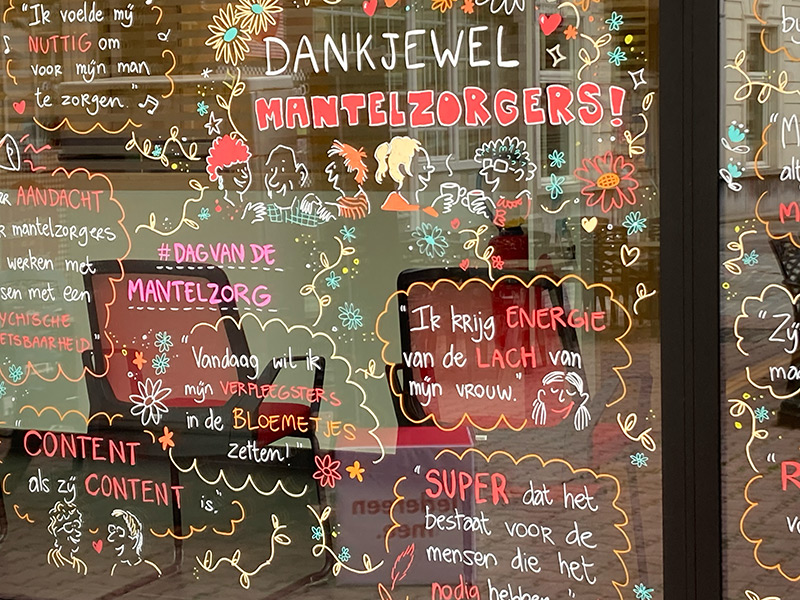 "Ik voelde mij
NUTTIG om
voor mijn man
te zorgen."
DANKJEWEL
MANTELZORGERS!
AANDACHT
mantelzorgers
werken met
met een
#DAG VAN DE
MANTELZORG
"Vandaag wil ik
mijn VERPLEEGSTERS
in de BLOEMETJES
zetten!"
"Ik krijg ENERGIE
van de LACH van
mijn vrouw."
CONTENT
als zij CONTENT
is."
"SUPER dat het
bestaat voor de
mensen die het
nodig hebben."
"Zij